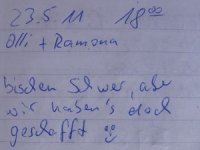 23.5.11 18⁰⁰
Olli + Ramona
bischen Schwer, aber
wir haben's doch
geschafft ☺